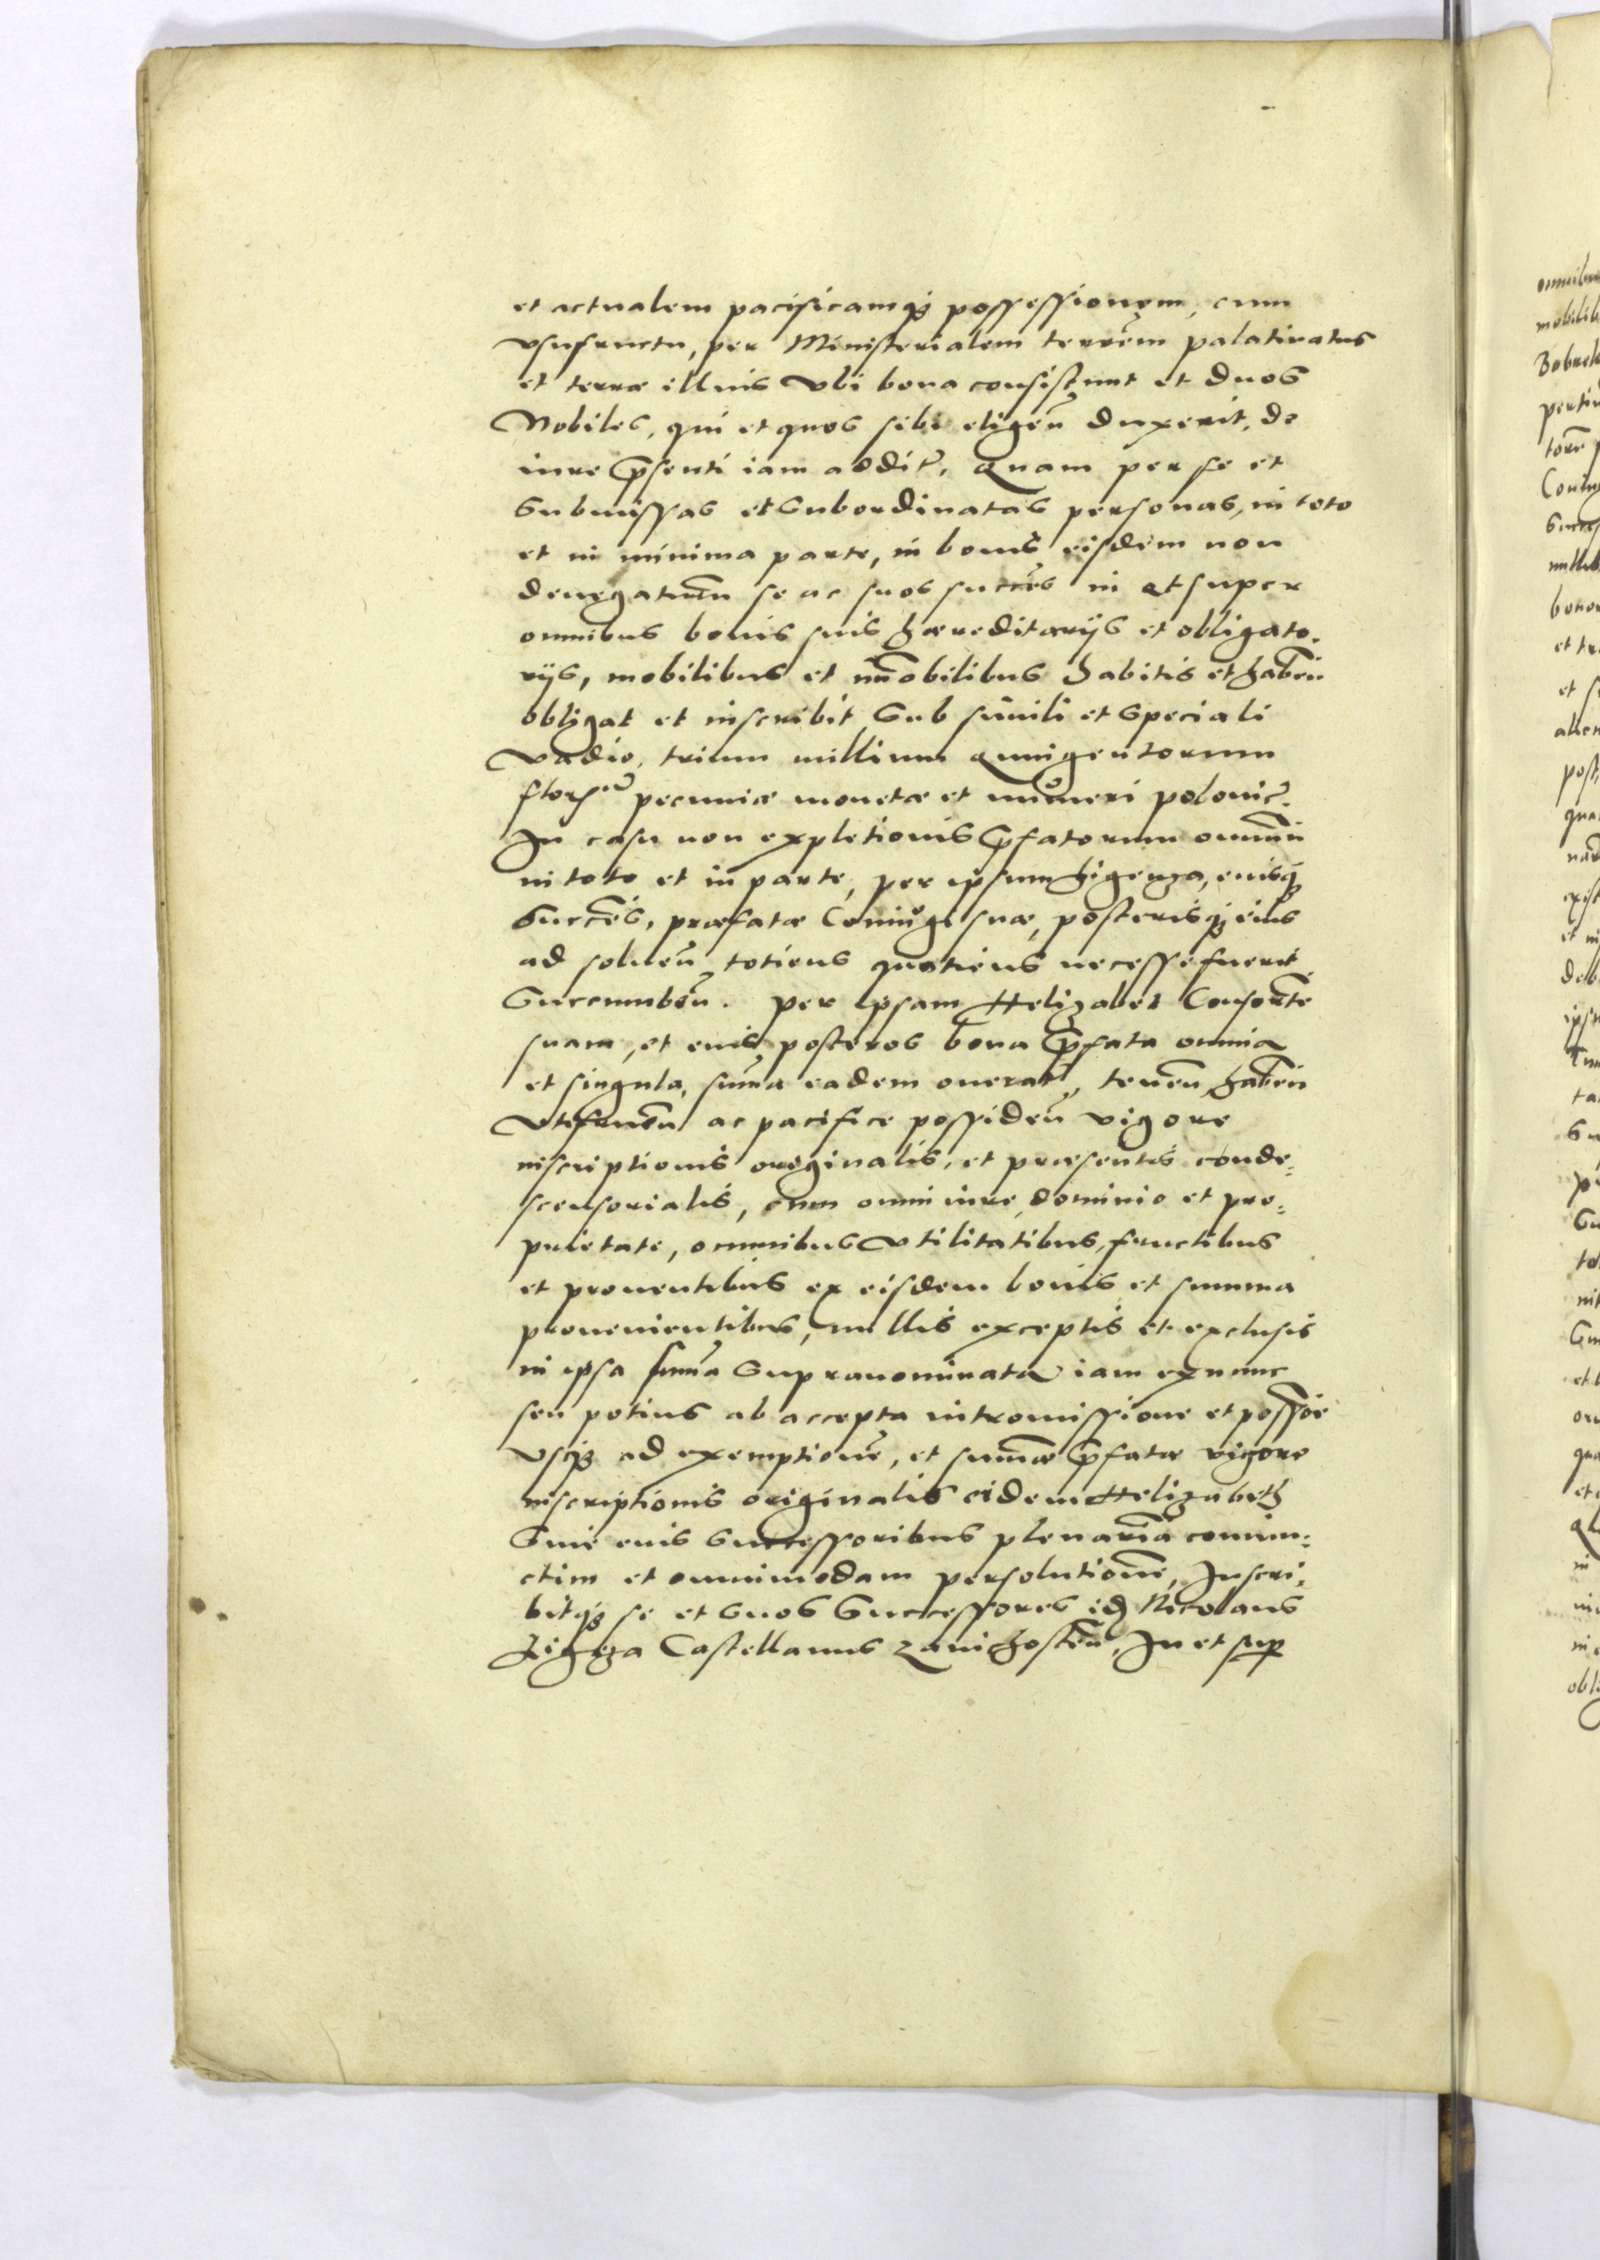 et actualem pacificamq3 possessionem, cum
vsufructu, per Ministerialem terrēm palatinatus
et terræ illius vbi bona consistunt et duos
Nobiles, qui et quos sibi eligeñ duxerit, de
iure p̄senti iam addit̄, Quam per se et
submissas et subordinatas personas, in toto
et in minima parte, in bonis eisdem non
denegaturum se ac suos succēs in et super
omnibus bonis suis hæreditarijs et obligato-
rijs, mobilibus et im̄obilibus habitis et habeñ
obligat et inscribit sub simili et speciali
vadio, trium millium quingentorum
flor pecuniæ monetæ et numeri polonic̄.
In casu non expletionis p̄fatorum omniū
in toto et in parte, per ipsum Ligenza, eiusq3
succēs, præfatæ Coniugi suæ, posterisq3 eius
ad solueñ totiens quotiens necesse fuerit
succumbeñ. per ipsam Helizabet Consortē
suam, et eius posteros bona p̄fata omnia
et singula, sum̄a eadem onerat̄, teneñ habeñ
vtifrueñ ac pacifice possideñ vigore
inscriptionis originalis, et præsentis conde-
scensorialis, cum omni iure dominio et pro-
prietate, omnibus vtilitatibus, fructibus
et prouentibus ex eisdem bonis et summa
prouenientibus, nullis exceptis et exclusis
in ipsa sum̄a supranominata iam ex nunc
seu potius ab accepta intromissione et possōne
vsq3 ad exemptionē, et sum̄æ p̄fatæ vigore
inscriptionis originalis eidem Helizabeth
siue eius successoribus plenariā coniun-
ctim et omnimodam persolutionē, Inscri-
bitq3 se et suos successores idē Nicolaus
Ligęza Castellanus Zawichosteñ, In et sup